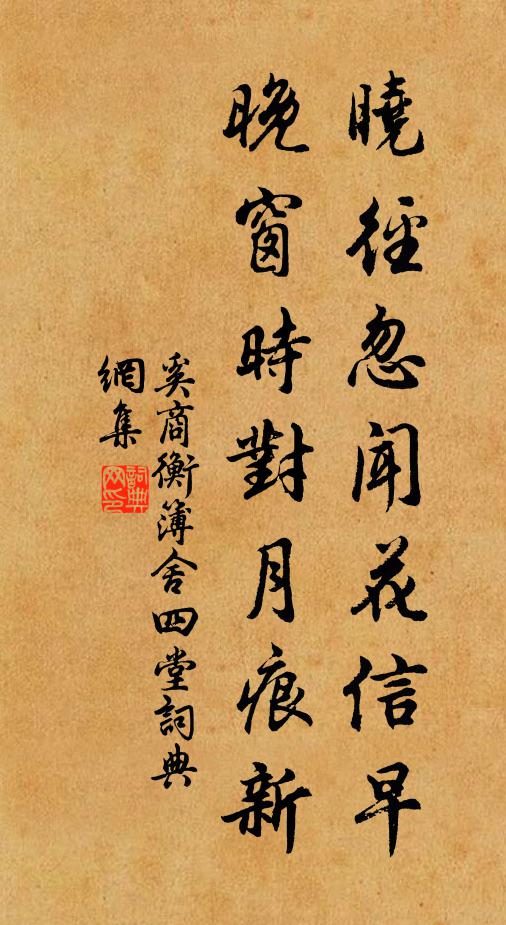 曉徑忽聞花信早
晚窗時對月痕新
奚商衡簿舍四堂詞典
網集
詞典
网印